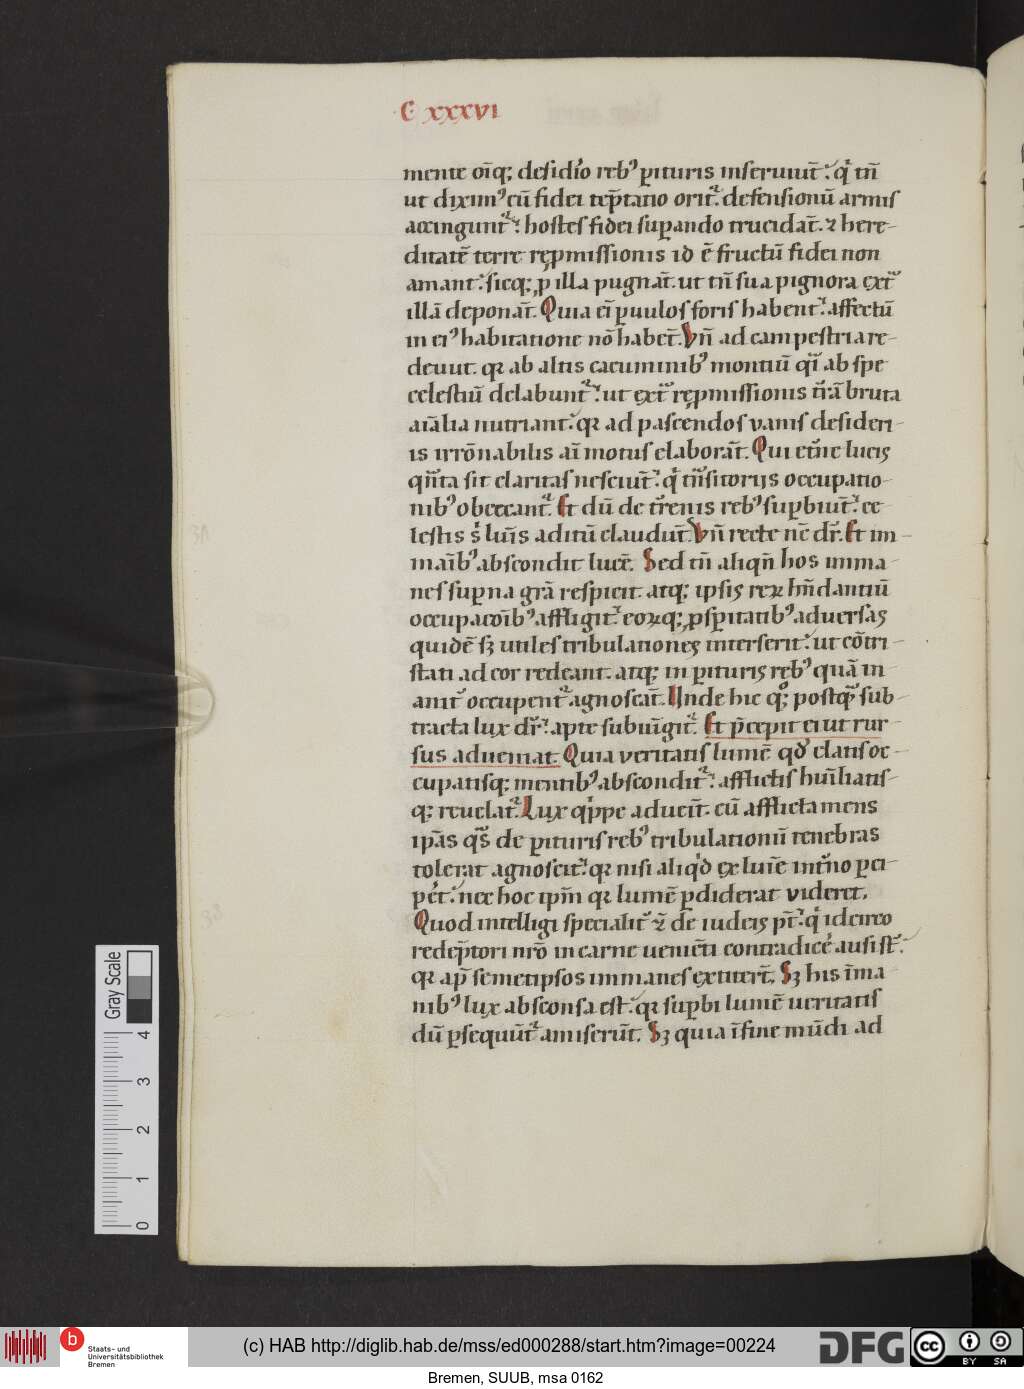 C XXXVI
mente oīq; desid̾io reb᾽ ꝑituris inseruiūt. q̾ tn̄
ut dixim᾽ cū fidei tēp̄tatio orit᷑. defensionū armis
accingunt᷑. hostes fidei suꝑando trucidāt. ⁊ here-
ditatē terre rep̱missionis id ē fructū fidei non
amant. sicq; ꝓ illa pugnāt. ut tn̄ sua pignora ext᷑
illā deponāt. Quia ei̅ puulos foris habent. affectū
in ei᾽ habitatione nō habēt. Vn̄ ad campestria re-
deūt. qꝛ ab altis cacuminib᾽ montiū qi̅ ab spe
celestiū delabunt᷑. ut ext᷑ repmissionis t̄rā bruta
aīalia nutriant. qꝛ ad pascendos vanis desideri-
is irrōnabilis aī motus elaborāt. Qui et̄ne lucis
qn̄ta sit claritas nesciūt. q̾ tn̄sitoriis occupatio-
nib᾽ obcecant᷑. Et dū de t̄renis reb᾽ suꝑbiūt. ce-
lestis s̾ luīs aditū claudūt. Vn̄ recte nc̄ dr̄. Et im-
manīb᾽ abscondit lucē. Sed tn̄ aliqn̄ hos imma-
nes suꝑna grā respicit. atq; ipsis reꝝ hn̄dantiū
occupacōib᾽ affligit. eoꝝq; ꝓsꝑitatib᾽ aduersas
quidē sꝫ utiles tribulationes interserit. ut cōtri-
stati ad cor redeant. atq; in ꝑituris reb᾽ quā in-
anit᷑ occupent᷑ agnoscāt. Unde hic q; postq̄ sub-
tracta lux dr̄. apte subiūgit᷑. Et p̄cepit ei ut rur-
sus adueniat. Quia veritatis lumē qd̾ elatis oc-
cupatisq; mentib᾽ abscondit᷑. afflictis hūiliatis-
q; reuelat᷑. Lux q̾ppe aduenīt. cū afflicta mens
ipās q̄s de ꝑituris reb᾽ tribulationū tenebras
tolerat agnoscit. qꝛ nisi aliq̾d ex luīe int̄no ꝑci-
ꝑet. nec hoc ipm̄ qꝛ lumē ꝑdiderat videret.
Quod intelligi specialit᷑ ⁊ de iudeis pt̄. q̾ idcirco
redēp̄tori nr̄o in carne ueniēti contradicē ausi st̄.
qꝛ ap̄ semetipsos immanes extiterūt. Sꝫ his īma-
nib᾽ lux absconsa est. qꝛ suꝑbi lumē ueritatis
dū ꝑsequūt᷑ amiserūt. Sꝫ quia ī fine mūdi ad
Gray Scale
4
3
2
1
0
b
Staats- und
Universitätsbibliothek
Bremen
(c) HAB http://diglib.hab.de/mss/ed000288/start.htm?image=00224
DFG
cc
BY SA
Bremen, SUUB, msa 0162